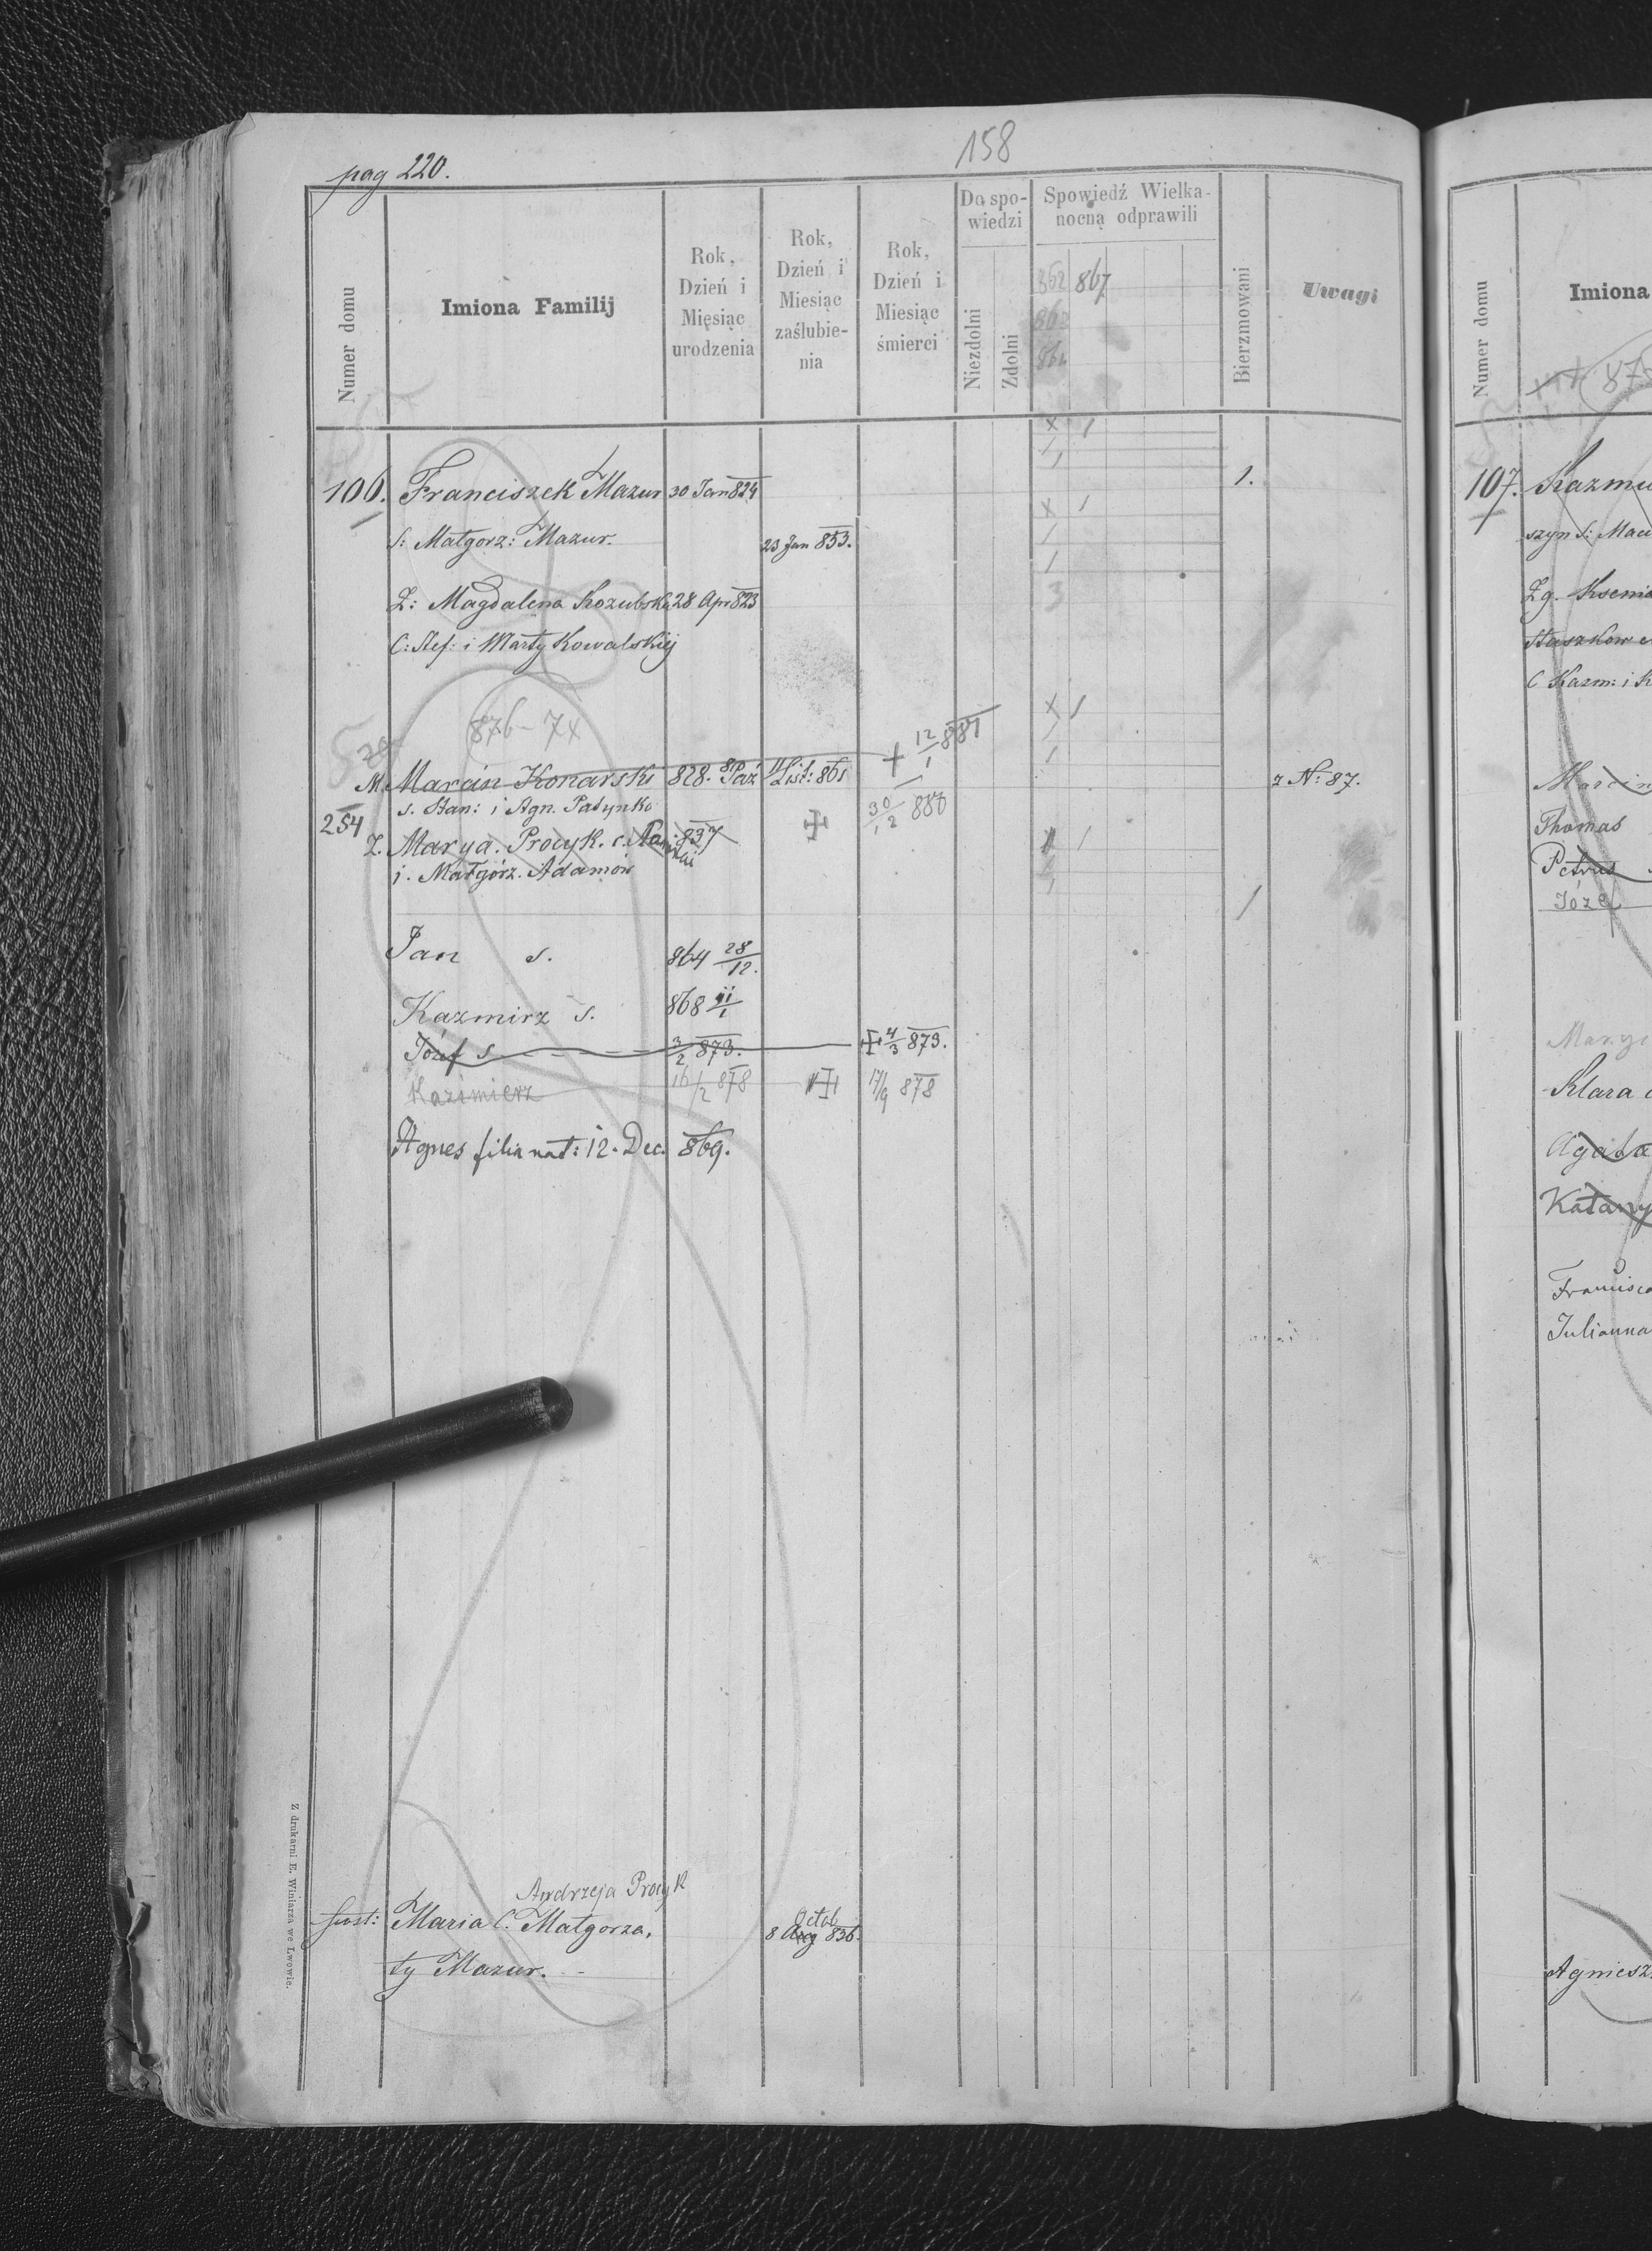 158
pag 220.
Numer domu
Imiona Familij
Rok, Dzień i Mięsiąc urodzenia
Rok, Dzień i Miesiąc zaślubienia
Rok, Dzień i Miesiąc śmierci
Do spowiedzi
Niezdolni
Zdolni
Spowiedź Wielkanocną odprawili
862 867
863
864
Bierzmowani
Uwagi
106. Franciszek Mazur 30 Jan 824 1.
S: Małgorz: Mazur. 23 Jan 853.
Ż: Magdalena Kozubska 28 Apr 823
C: Stef: i Marty Kowalskiéj
876 - 7x
M. Marcin Konarski 828. Paź List: 861 + 12/1 881 z N: 87.
s. Stan: i Agn. Patynko
254 30/12 888
Ż. Marya. Procyk. c. 837
i. Małgórz. Adamów
Jan s. 864 28/12.
Kazmirz s. 868 11/1
Józef s. 3/2 873. 4/3 873.
Kazimierz 16/2 878 17/9 878
Agnes filia nat: 12. Dec. 869.
Andrzeja Procyk
Maria C. Małgorza, 8 Octob Aug 836.
ty Mazur.
Z drukarni E. Winiarza we Lwowie.
Numer domu
Imiona
107. Kazmi
szyn S: Maci
Żg. Ksenia
Staszków c
C Kazm: i K
Marcin
Thomas
Petrus
Józef
Mary
Klara
Agata
Katarzy
Francisc
Julianna
Agniesz